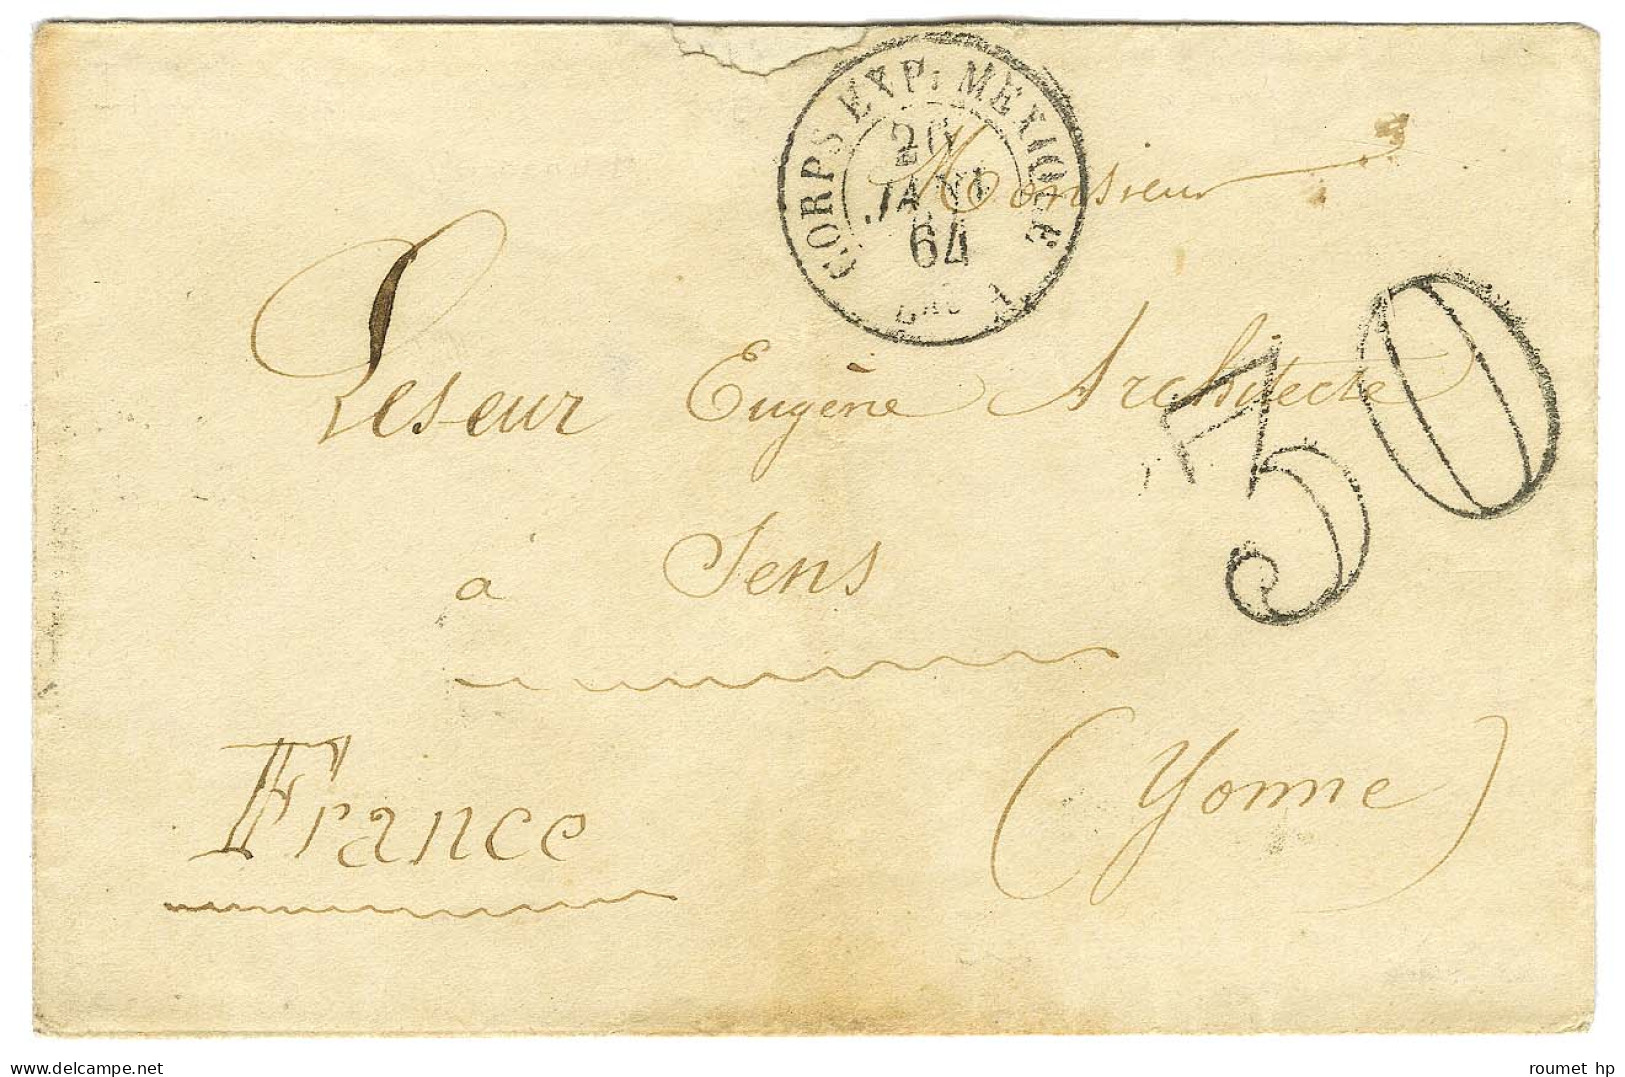 CORPS EXP. MEXIQUE
26
JANV
64
Bau A
Monsieur
Leseur Eugène Architecte
30
à Sens
(Yonne)
France
delcampe.net
roumet hp